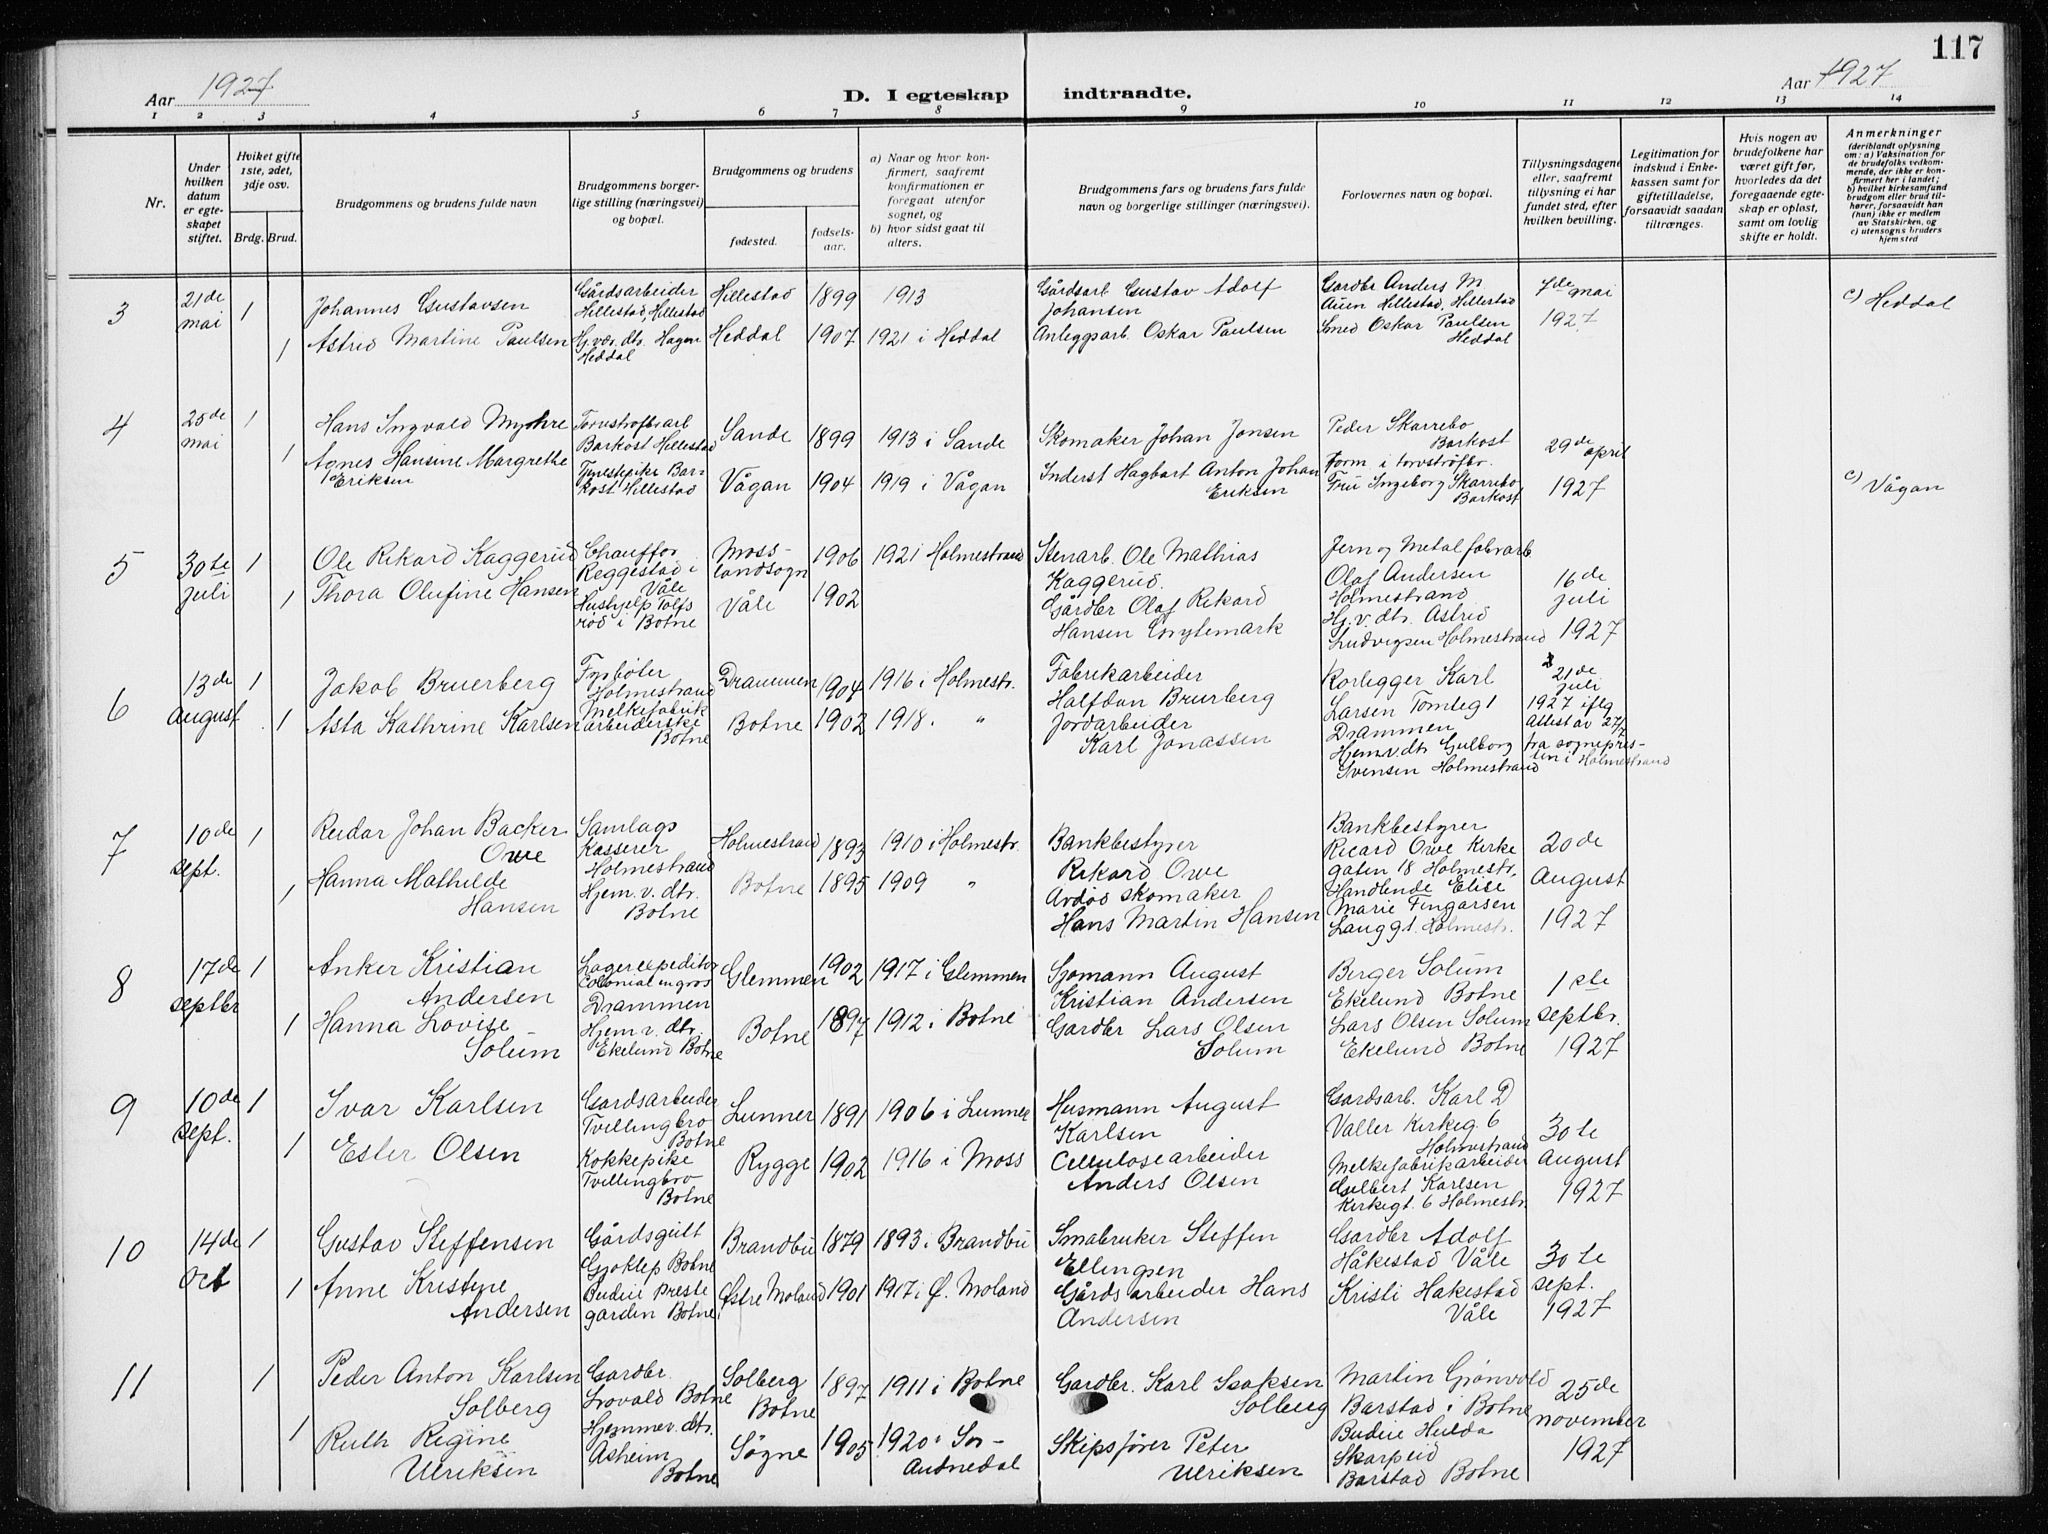 117
Aar 1927
D. I egteskap indtraadte.
Aar 1927
1 2 3 4 5 6 7 8 9 10 11 12 13 14
Nr.
Under
hvilken
datum
er egte-
skapet
stiftet.
Hviket gifte
1ste, 2det,
3dje osv.
Brdg. Brud.
Brudgommens og brudens fulde navn
Brudgommens borger-
lige stilling (næringsvei)
og bopæl.
Brudgommens og brudens
fødested.
fødsels-
aar.
a) Naar og hvor kon-
firmert, saafremt
konfirmationen er
foregaat utenfor
sognet, og
b) hvor sidst gaat til
alters.
Brudgommens fars og brudens fars fulde
navn og borgerlige stillinger (næringsvei).
Forlovernes navn og bopæl.
Tillysningsdagene
eller, saafremt
tillysning ei har
fundet sted, efter
hvilken bevilling.
Legitimation for
indskud i Enke-
kassen samt for
giftetilladelse,
forsaavidt saadan
tiltrænges.
Hvis nogen av
brudefolkene har
været gift før,
hvorledes da det
foregaaende egte-
skap er opløst,
samt om lovlig
skifte er holdt.
Anmerkninger
(deriblandt oplysning
om: a) Vaksination for
de brudefolks vedkom-
mende, der ikke er kon-
firmert her i landet;
b) hvilket kirkesamfund
brudgom eller brud til-
hører, forsaavidt han
(hun) ikke er medlem
av Statskirken, og
c) utensogns bruders
hjemsted
3
21de
mai
1
1
Johannes Gustavsen
Astrid Martine Paulsen
Gårdsarbeider
Hillestad, Hillestad
Hj.væ. dtr. Hagen
Heddal
Hillestad 1899 1913
Heddal 1907 1921 i Heddal
Gårdsarb. Gustav Adolf
Johansen
Anleggsarb. Oskar Paulsen
Gardbr Anders M.
Auen Hillestad, Hillestad
Smed Oskar Paulsen
Heddal
7de mai
1927
c) Heddal
4
25de
mai
1
1
Hans Ingvald Myhre
Agnes Hansine Margrethe
Eriksen
Torvstrøfbr.arb
Barkost Hillestad
Tjenestepike Bar-
kost Hillestad
Sande 1899 1913 i Sande
Vågan 1904 1919 i Vågan
Skomaker Johan Jonsen
Inderst Hagbart Anton Johan
Eriksen
Peder Skarrebo
Barkost
Form i torvstrøfbr.
Fru Ingeborg Skarrebo
Barkost
29de april
1927
c) Vågan
5
30te
juli
1
1
Ole Rikard Kaggerud
Thora Olufine Hansen
Chauffør
Reggestad i
Våle
Hushjelp Tolfs
rød i Botne
Moss-
landsogn
1906 1921 Holmestrand
Våle 1902
Stenarb. Ole Mathias
Kaggerud.
Gårdbr Olaf Rikard
Hansen Grytemark
Jern og Metalfabrarb
Olaf Andersen
Holmestrand
Hj. v. dtr. Astrid
Ludvigsen Holmestrand
16de
juli
1927
6
13de
august
1
1
Jakob Bruerberg
Asta Kathrine Karlsen
Fyrbøter
Holmestrand
Melkefabrik
arbeiderske
Botne
Drammen 1904 1916 i Holmestr.
Botne 1902 1918. "
Fabrikarbeider
Halfdan Bruerberg
Jordarbeider
Karl Jonassen
Rørlegger Karl
Larsen Tomtegt
Drammen
Hjem.v.dtr Gulborg
Svensen Holmestrand
21de
juli
1927 iflg
attest av 27/7
fra sognepres-
ten i Holmestrand
7
10de
sept.
1
1
Reidar Johan Backer
Owe
Hanna Mathilde
Hansen
Samlags
Kasserer
Holmestrand
Hjem. v. dtr.
Botne
Holmestrand 1893 1910 i Holmestr.
Botne 1895 1909 "
Bankbestyrer
Rikard Owe
Avdød skomaker
Hans Martin Hansen
Bankbestyrer
Ricard Owe Kirke
gaten 18 Holmestr.
Handlende Elise
Marie Fingarsen
Langgt. Holmestr.
20de
August
1927
8
17de
septbr
1
1
Anker Kristian
Andersen
Hanna Lovise
Solum
Lagerexpeditør
Colonial en gros
Drammen
Hjem v. dtr.
Ekelund Botne
Glemmen 1902 1917 i Glemmen
Botne 1897 1912 i Botne
Sjømann August
Kristian Andersen
Gardbr Lars Olsen
Solum
Berger Solum
Ekelund Botne
Lars Olsen Solum
Ekelund Botne
1ste
septbr.
1927
9
10de
sept.
1
1
Ivar Karlsen
Ester Olsen
Gardsarbeider
Tvillingbro
Botne
Kokkepike
Tvillingbro
Botne
Lunner 1891 1906 i Lunner
Rygge 1902 1916 i Moss
Husmann August
Karlsen
Cellulosearbeider
Anders Olsen
Gardsarb. Karl D
Valler Kirkeg. 6
Holmestrand
Melkefabrikarbeider
Gilbert Karlsen
Kirkegt. 6 Holmestr.
30te
August
1927
10
14de
Oct
1
1
Gustav Steffensen
Anne Kristine
Andersen
Gårdsgutt
Gjøklep Botne
Budeie Preste
garden Botne
Brandbu 1879 1893 i Brandbu
Østre Moland 1901 1917 i Ø. Moland
Småbruker Steffen
Ellingsen
Gårdsarbeider Hans
Andersen
Gardbr Adolf
Håkestad Våle
Kristi Håkestad
Våle
30te
sept.
1927
11
1
1
Peder Anton Karlsen
Solberg
Ruth Regine
Ulriksen
Gardbr.
Lovald Botne
Hjemmev. dtr.
Åsheim
Botne
Solberg
Botne
1897 1911 i Botne
Søgne 1905 1920 i Sør-
Audnedal
Gardbr. Karl Isaksen
Solberg
Skipsfører Peter
Ulriksen
Martin Grønvold
Barstad i Botne
Budeie Hulda
Skarpeid
Barstad Botne
25de
november
1927